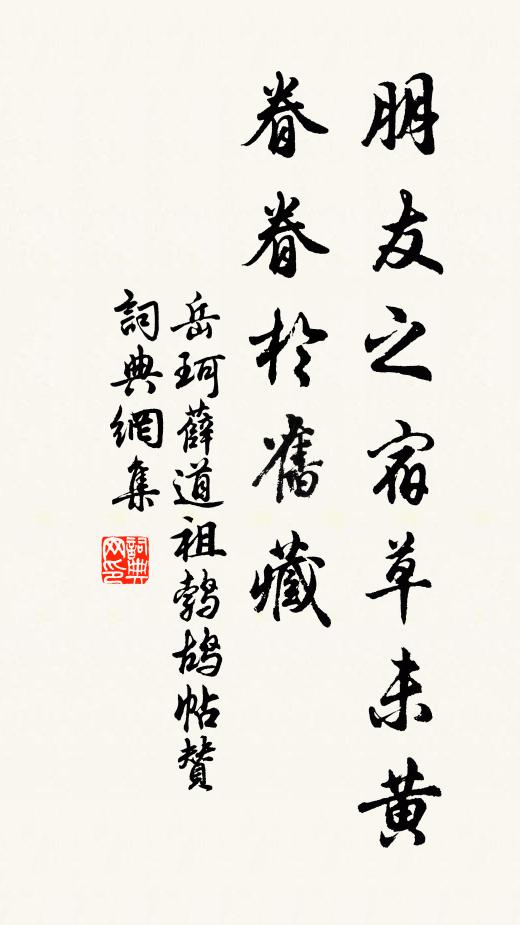 朋友之宿草未黄
眷眷於舊藏
岳珂薛道祖鹁鸪帖贊
詞典網集
詞典网印